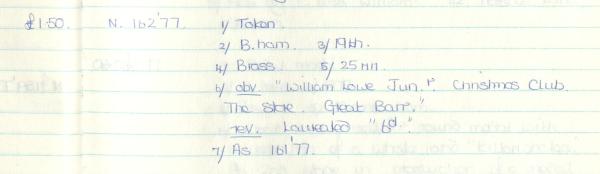 £1·50. N. 162'77. 1/ Token.
2/ B.ham. 3/ 19th.
4/ Brass. 5/ 25mm.
6/ obv. "William Lowe Jun.r. Christmas Club.
The Store. Great Barr."
rev. Laureated "6d."
7/ As 161'77.